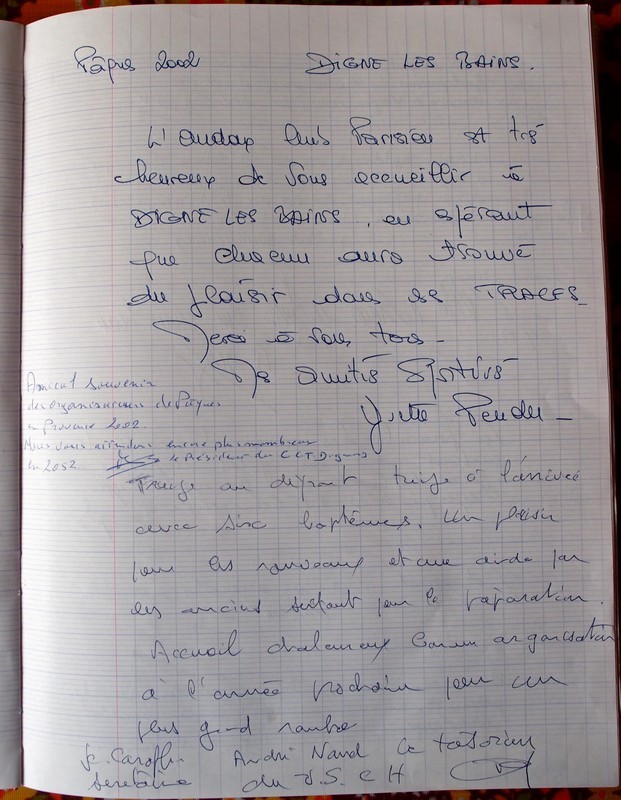 Pâques 2002 DIGNE LES BAINS.
L'Audax Club Parisien est très
heureux de vous accueillir à
DIGNE LES BAINS, en espérant
que chacun aura trouvé
du plaisir dans ses TRACES_
Merci à vous tous_
Mes amitiés Sportives
Amical souvenir
des organisateurs de Pâques
en Provence 2002.
Nous vous attendons encore plus nombreux
en 2052
le Président du CCT Dignois
Treize au départ treize à l'arrivée
avec six baptêmes. Un plaisir
pour les nouveaux et une aide par
les anciens surtout pour la préparation.
Accueil chaleureux bonne organisation
à l'année prochaine pour un
plus grand nombre
André Le trésorier
Secrétaire du